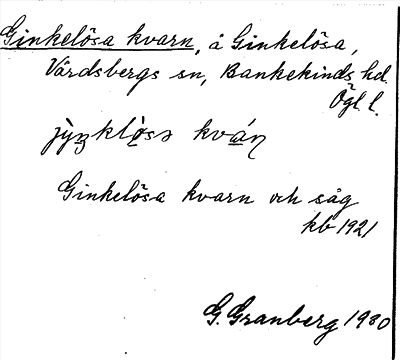 Ginkelösa kvarn, å Ginkelösa,
Vårdsbergs sn, Bankekinds hd.
Ögl. l.
jỳŋklò̤sə kvá̤ɳ
Ginkelösa kvarn och såg
kb 1921
G. Granberg 1930